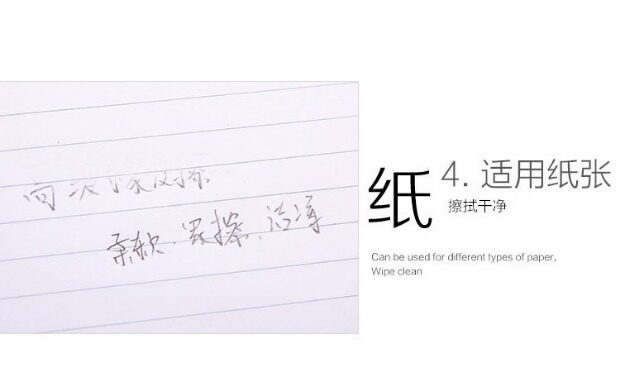 柔软 擦 洁净
纸
4. 适用纸张
擦拭干净
Can be used for different types of paper,
Wipe clean